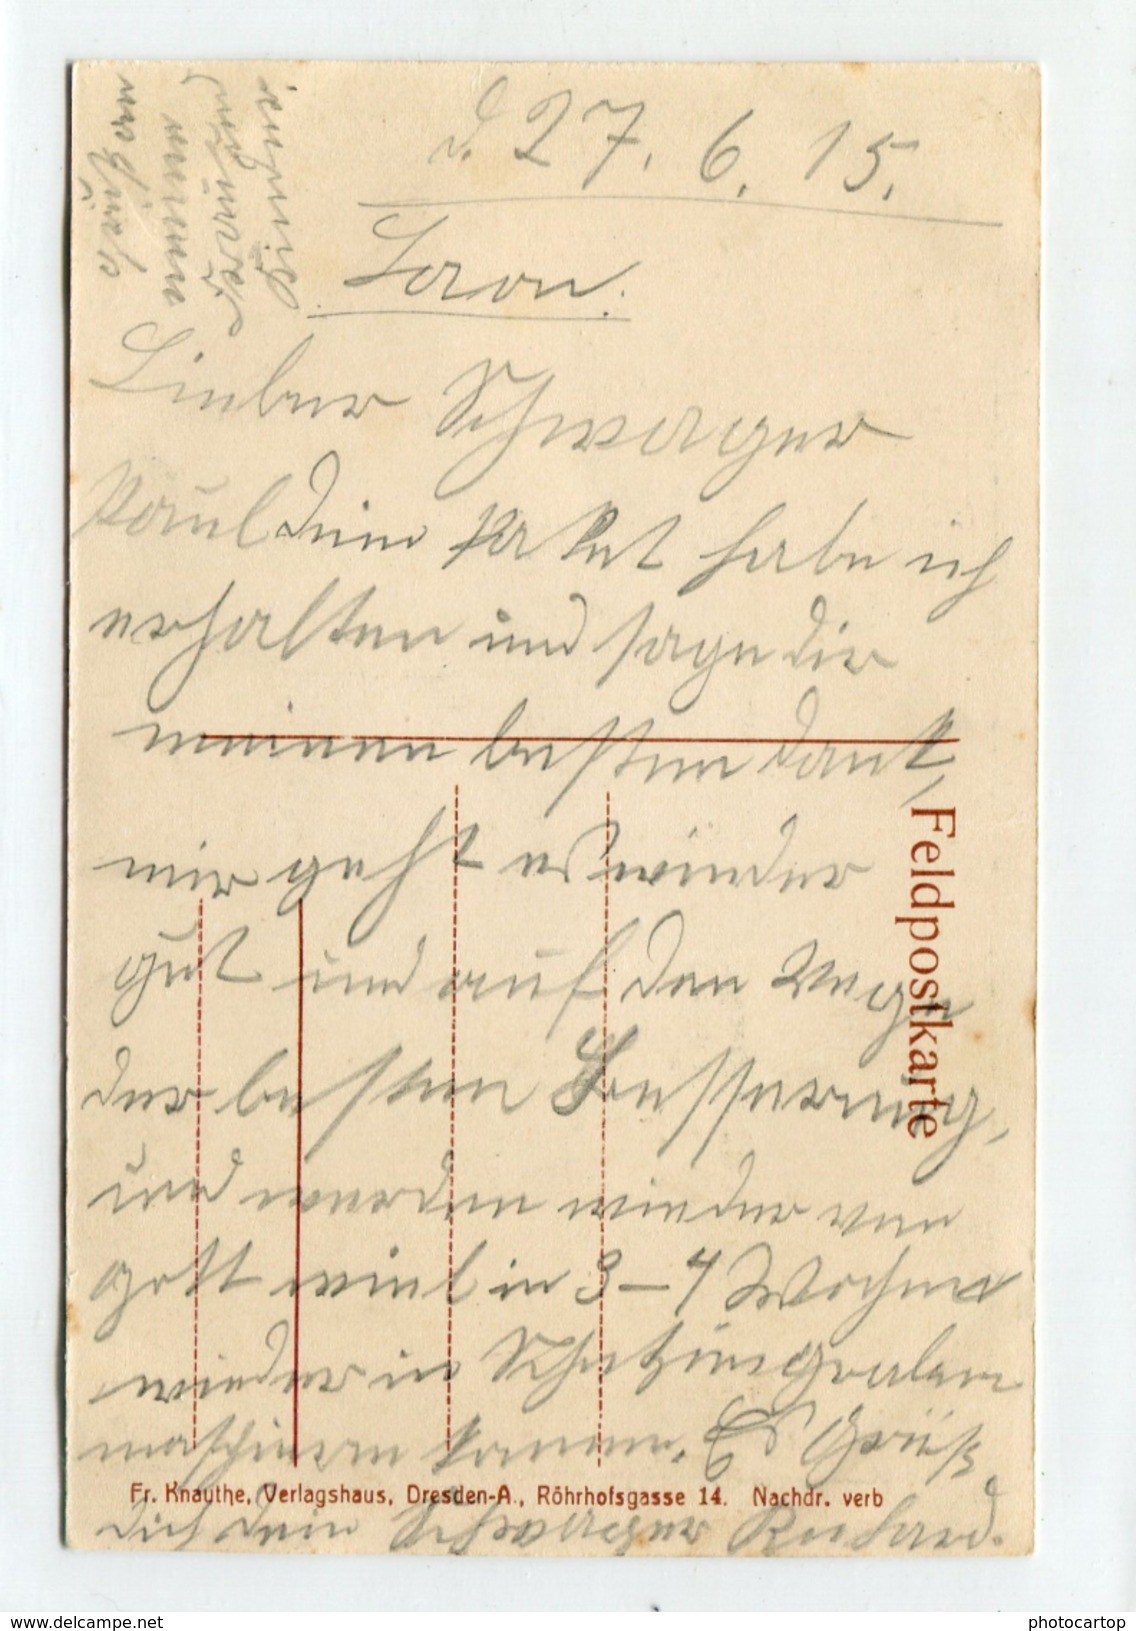 d. 27. 6. 15.
Laon.
Lieber Schwager
Paul dein Paket habe ich
erhalten und sage dir
meinen besten dank,
mir geht es wieder
gut und auf den Wege
der besten Besserung,
und werden wieder von
gott viel in 3-4 Wochen
wieder in
maschieren kannen. Es Grüß
dich dein Schwager Richard.
Gruß an
meine
Feldpostkarte
Fr. Knauthe, Verlagshaus, Dresden-A., Röhrhofsgasse 14. Nachdr. verb
www.delcampe.net
photocartop